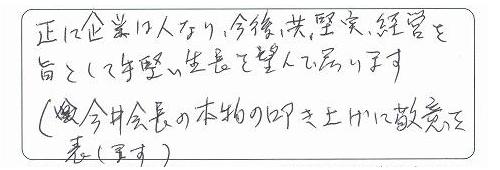 正に企業は人なり、今後、共、堅実、経営を
旨として手堅い生長を望んで居ります
(今井会長の本物の叩き上げに敬意を
表します)